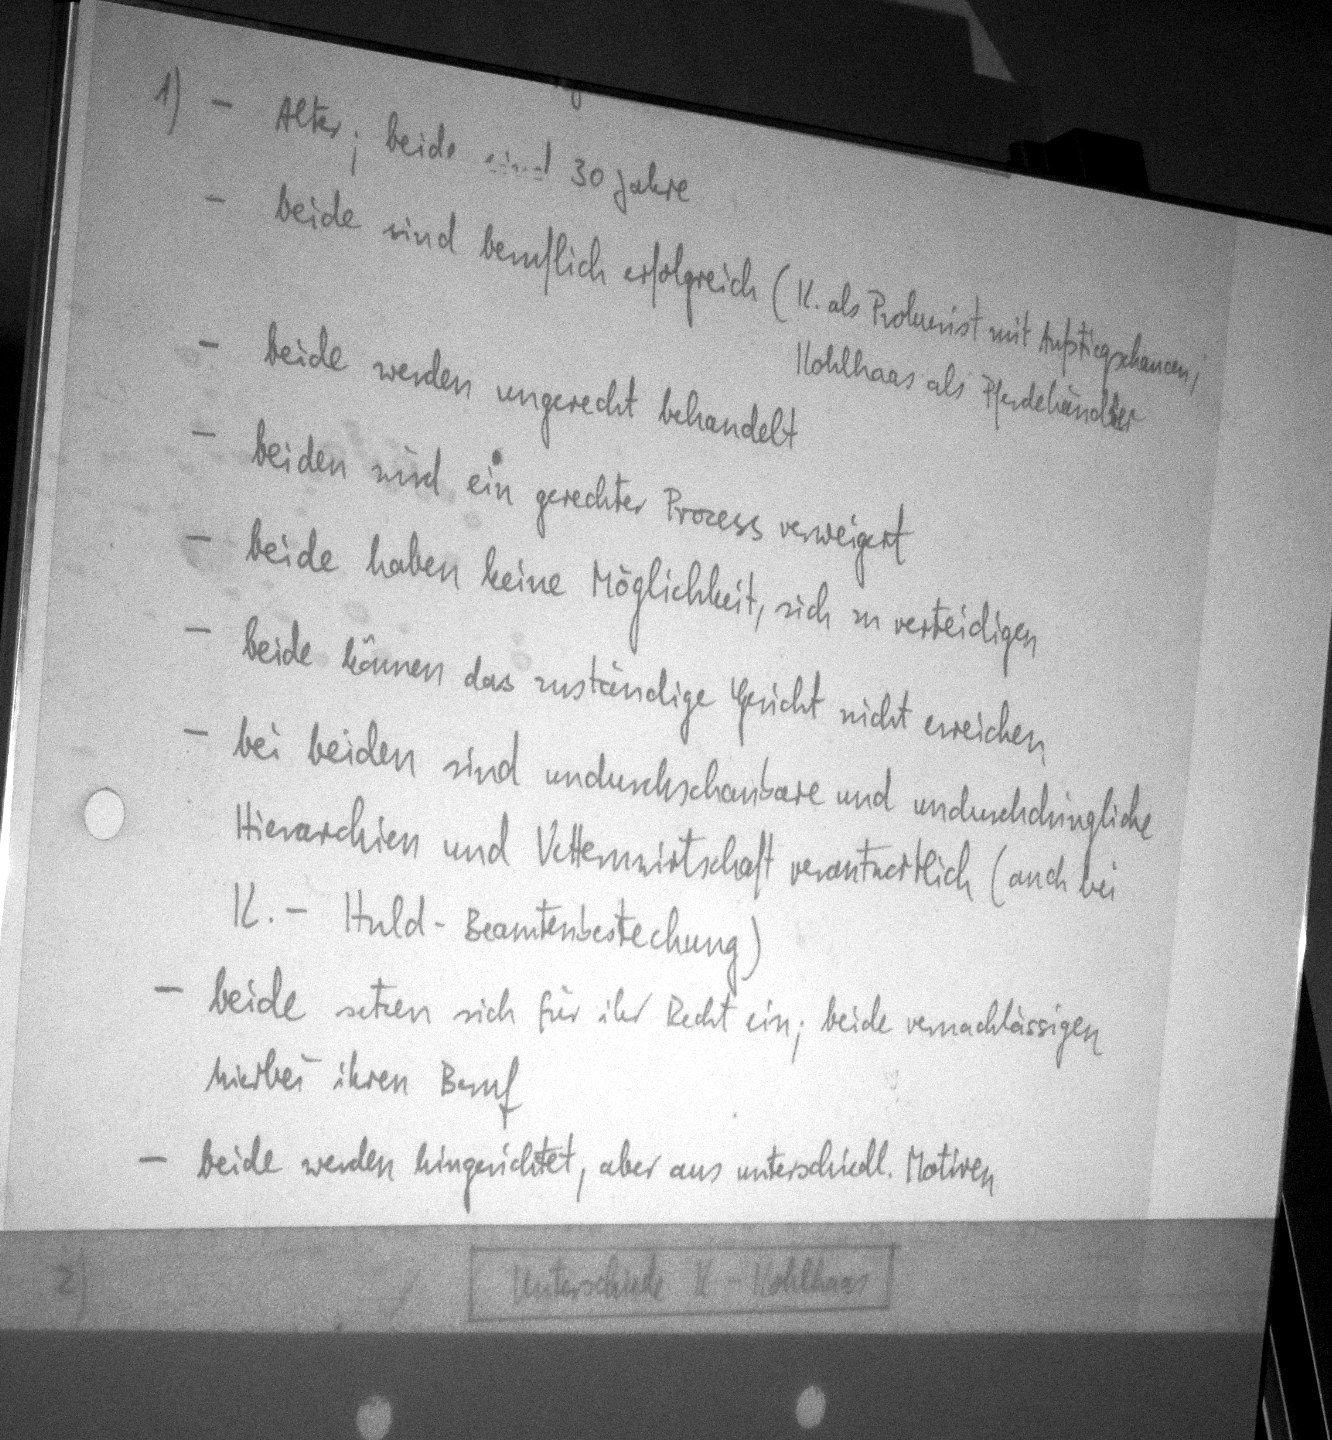 1) - Alter; beide sind 30 Jahre
- beide sind beruflich erfolgreich (K. als Prokurist mit Aufstiegschancen,
Kohlhaas als Pferdehändler
- beide werden ungerecht behandelt
- beiden wird ein gerechter Prozess verweigert
- beide haben keine Möglichkeit, sich zu verteidigen
- beide können das zuständige Gericht nicht erreichen
- bei beiden sind undurchschaubare und undurchdringliche
Hierarchien und Vetternwirtschaft verantwortlich (auch bei
K. - Huld - Beamtenbestechung)
- beide setzen sich für ihr Recht ein; beide vernachlässigen
hierbei ihren Beruf
- beide werden hingerichtet, aber aus unterschiedl. Motiven
2) Unterschiede K - Kohlhaas